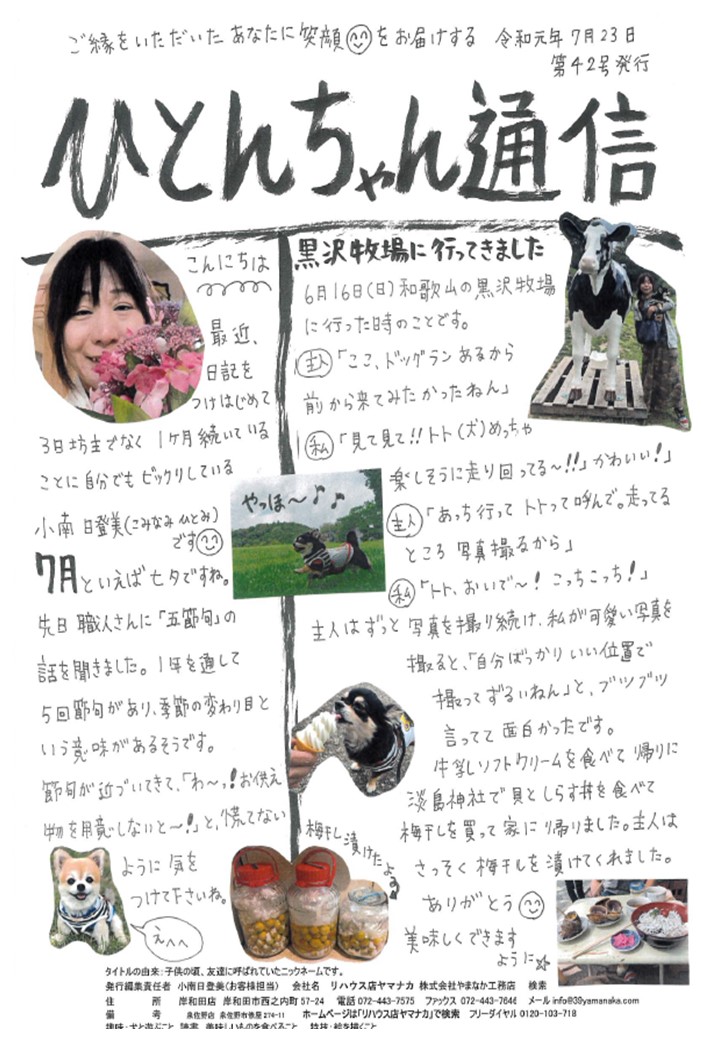 ご縁をいただいた あなたに笑顔をお届けする 令和元年7月23日
第42号発行
ひとんちゃん通信
こんにちは
最近、
日記を
つけはじめて
3日坊主でなく 1ヶ月続いている
ことに自分でもビックリしている
小南 日登美(こみなみ ひとみ)
です
7月といえば七夕ですね。
先日 職人さんに「五節句」の
話を聞きました。1年を通して
5回節句があり、季節の変わり目と
いう意味があるそうです。
節句が近づいてきて、「わ〜っ!お供え
物を用意しないと〜!」と、慌てない
ように 気を
つけて下さいね。
えへへ
黒沢牧場に行ってきました
6月16日(日)和歌山の黒沢牧場
に行った時のことです。
主人「ここ、ドッグランあるから
前から来てみたかったねん」
私「見て見て!!トト(犬)めっちゃ
楽しそうに走り回ってる〜!!」かわいい!」
主人「あっち行って トトって呼んで。走ってる
ところ 写真撮るから」
私「トト、おいで〜!こっちこっち!」
主人はずっと 写真を撮り続け、私が可愛い写真を
撮ると、「自分ばっかり いい位置で
撮って ずるいねん」と、ブツブツ
言ってて 面白かったです。
牛乳ソフトクリームを食べて 帰りに
淡島神社で貝としらす丼を食べて
梅干しを買って 家に帰りました。主人は
さっそく 梅干しを漬けてくれました。
ありがとう
美味しくできます
ように☆
やっほ〜♪♪
梅干し漬けたよ
タイトルの由来:子供の頃、友達に呼ばれていたニックネームです。
発行編集責任者 小南日登美(お客様担当) 会社名 リハウス店ヤマナカ 株式会社やまなか工務店 検索
住 所 岸和田店 岸和田市西之内町57-24 電話 072-443-7575 ファックス 072-443-7646 メール info@39yamanaka.com
備 考 泉佐野店 泉佐野市俵屋274-11 ホームページは「リハウス店ヤマナカ」で検索 フリーダイヤル 0120-103-718
趣味:犬と遊ぶこと、読書、美味しいものを食べること 特技:絵を描くこと